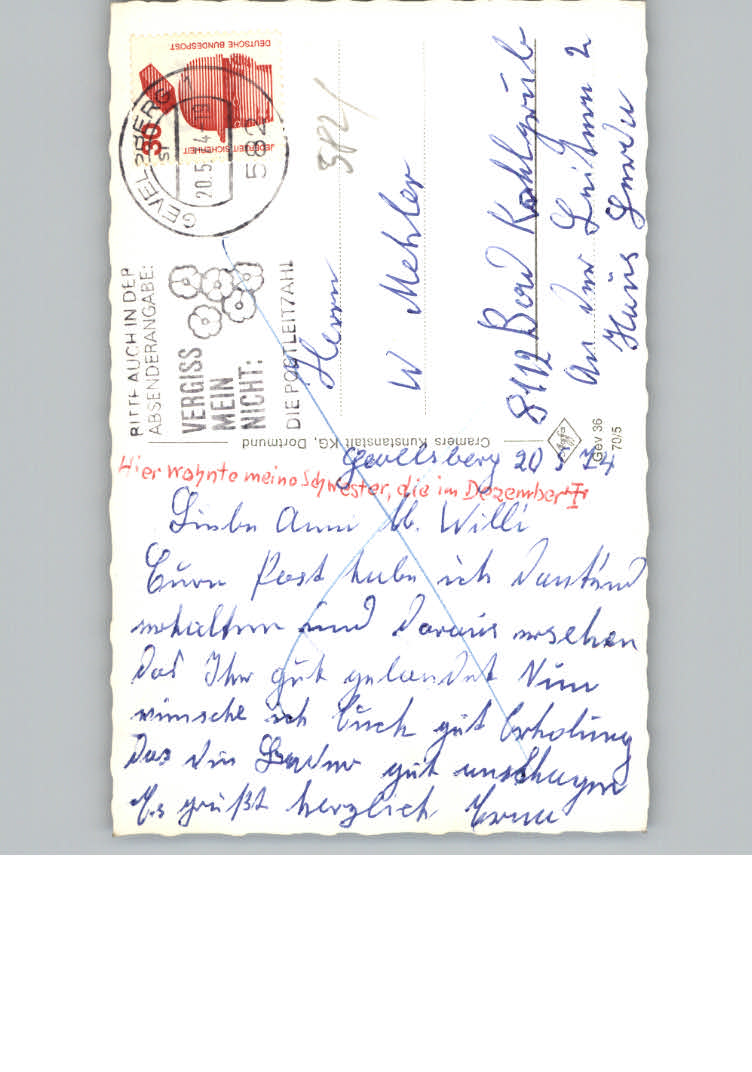 DEUTSCHE BUNDESPOST
JEDERZEIT SICHERHEIT
30
GEVELSBERG 1
20.5.74
582
BITTE AUCH IN DER
ABSENDERANGABE:
VERGISS
MEIN
NICHT:
DIE POSTLEITZAHL
382/
Herrn
W Mehler
8112 Bad Kohlgrub
An der Leiten 2
Haus Gerda
Cramers Kunstanstalt KG, Dortmund
Agfa
Gev 36
70/5
Gevelsberg 20 5 74
Hier wohnte meine Schwester, die im Dezember †
Liebe Anni u. Willi
Eure Post habe ich dankend
erhalten und daraus ersehen
das Ihr gut gelandet Nun
wünsche ich Euch gut Erholung
das die Bäder gut anschlagen
Es grüßt herzlich Erna